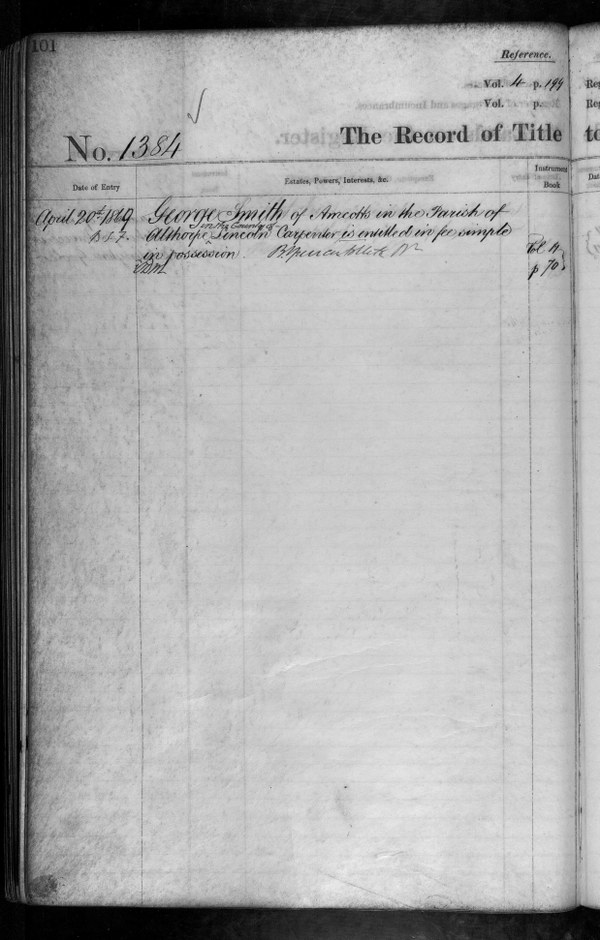 101
Reference.
Vol. 4 p. 199
Vol. p.
No. 1384 The Record of Title
Date of Entry
Estates, Powers, Interests, &c.
Instrument
Book
April 20th 1869 George Smith of Amcotts in the Parish of
in the County of
Althorpe Lincoln Carpenter is entitled in fee simple
in possession
Vol 4
p 70